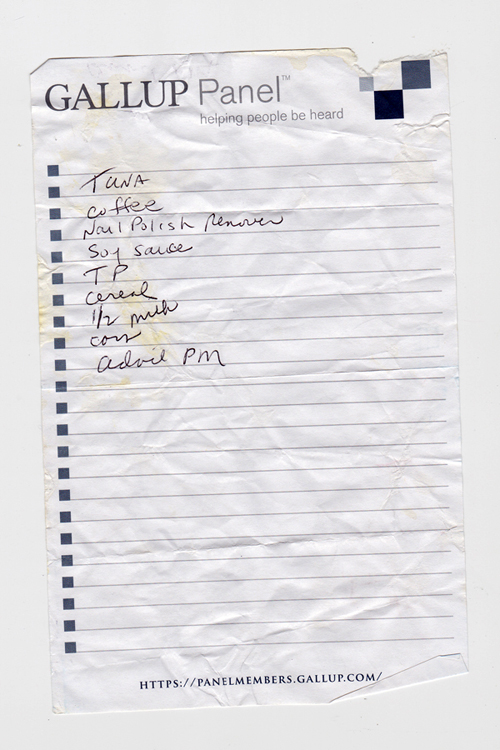 GALLUP Panel™
helping people be heard
TUNA
coffee
Nail Polish Remover
Soy sauce
TP
cereal
1/2 milk
corn
advil PM
HTTPS://PANELMEMBERS.GALLUP.COM/